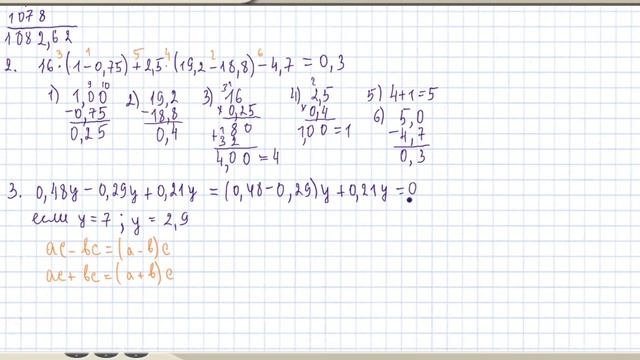 1078
1082,62
3 1 5 4 2 6
2. 16·(1-0,75)+2,5·(19,2-18,8)-4,7=0,3
1) 1,00 -0,75 0,25
2) 19,2 -18,8 0,4
3) 16 × 0,25 + 80 32 4,00=4
4) 2,5 × 0,4 1,00=1
5) 4+1=5
6) 5,0 -4,7 0,3
3. 0,48y-0,29y+0,21y=(0,48-0,29)y+0,21y=0
если y=7; y=2,9
ac-bc=(a-b)c
ac+bc=(a+b)c